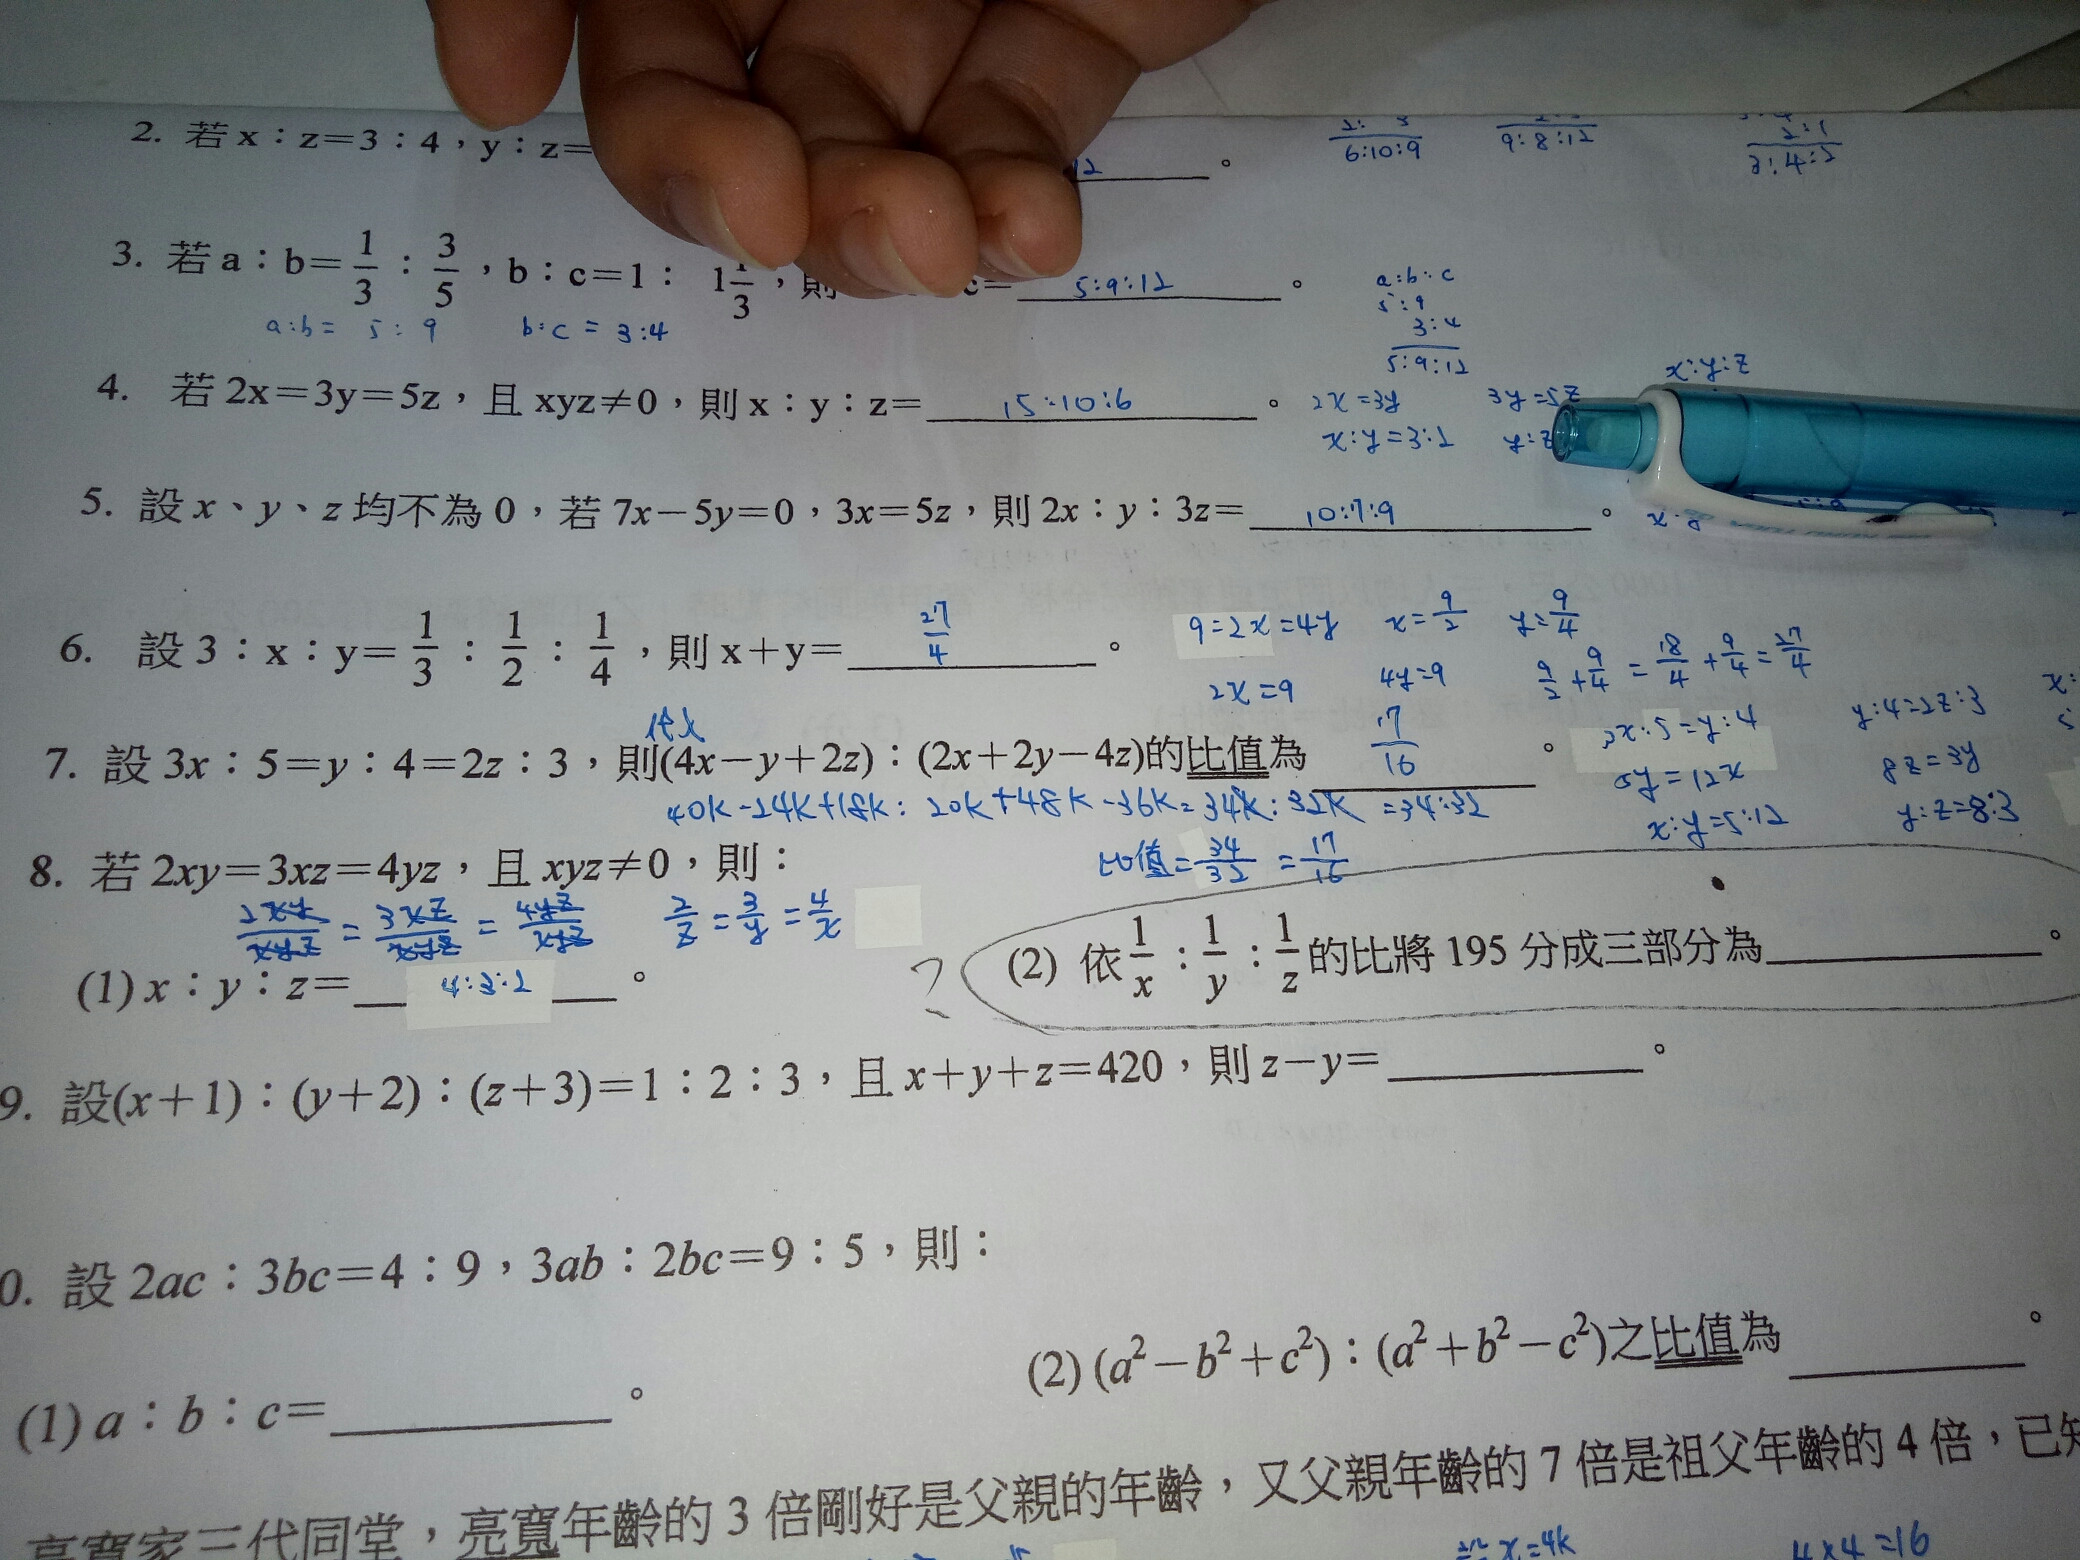 2. 若 x：z=3：4，y：z=
12 。
6:10:9
9:8:12
3. 若 a：b=1/3：3/5，b：c=1：1 1/3，則 c= 5:9:12 。
a:b= 5:9 b:c = 3:4
a:b:c
5:9
3:4
5:9:12
4. 若 2x=3y=5z，且 xyz≠0，則 x：y：z= 15:10:6 。
2x=3y 3y=5z
x:y=3:2 y:z
x:y:z
5. 設 x、y、z 均不為 0，若 7x−5y=0，3x=5z，則 2x：y：3z= 10:7:9 。
6. 設 3：x：y=1/3：1/2：1/4，則 x+y= 27/4 。
9=2x=4y x=9/2 y=9/4
2x=9 4y=9 9/2+9/4=18/4+9/4=27/4
代入
7. 設 3x：5=y：4=2z：3，則(4x−y+2z)：(2x+2y−4z)的比值為 17/16 。
40k-24k+18k: 20k+48k-36k=34k:32k =34:32
比值=34/32 =17/16
3x:5=y:4 y:4=2z:3
5y=12x 8z=3y
x:y=5:12 y:z=8:3
8. 若 2xy=3xz=4yz，且 xyz≠0，則：
2xy/xyz = 3xz/xyz = 4yz/xyz 2/z=3/y=4/x
(1) x：y：z= 4:3:2 。
? (2) 依 1/x：1/y：1/z 的比將 195 分成三部分為 。
9. 設(x+1)：(y+2)：(z+3)=1：2：3，且 x+y+z=420，則 z−y= 。
0. 設 2ac：3bc=4：9，3ab：2bc=9：5，則：
(1) a：b：c= 。
(2) (a²−b²+c²)：(a²+b²−c²)之比值為 。
亮寬家三代同堂，亮寬年齡的 3 倍剛好是父親的年齡，又父親年齡的 7 倍是祖父年齡的 4 倍，已知
x=4k 4x4=16